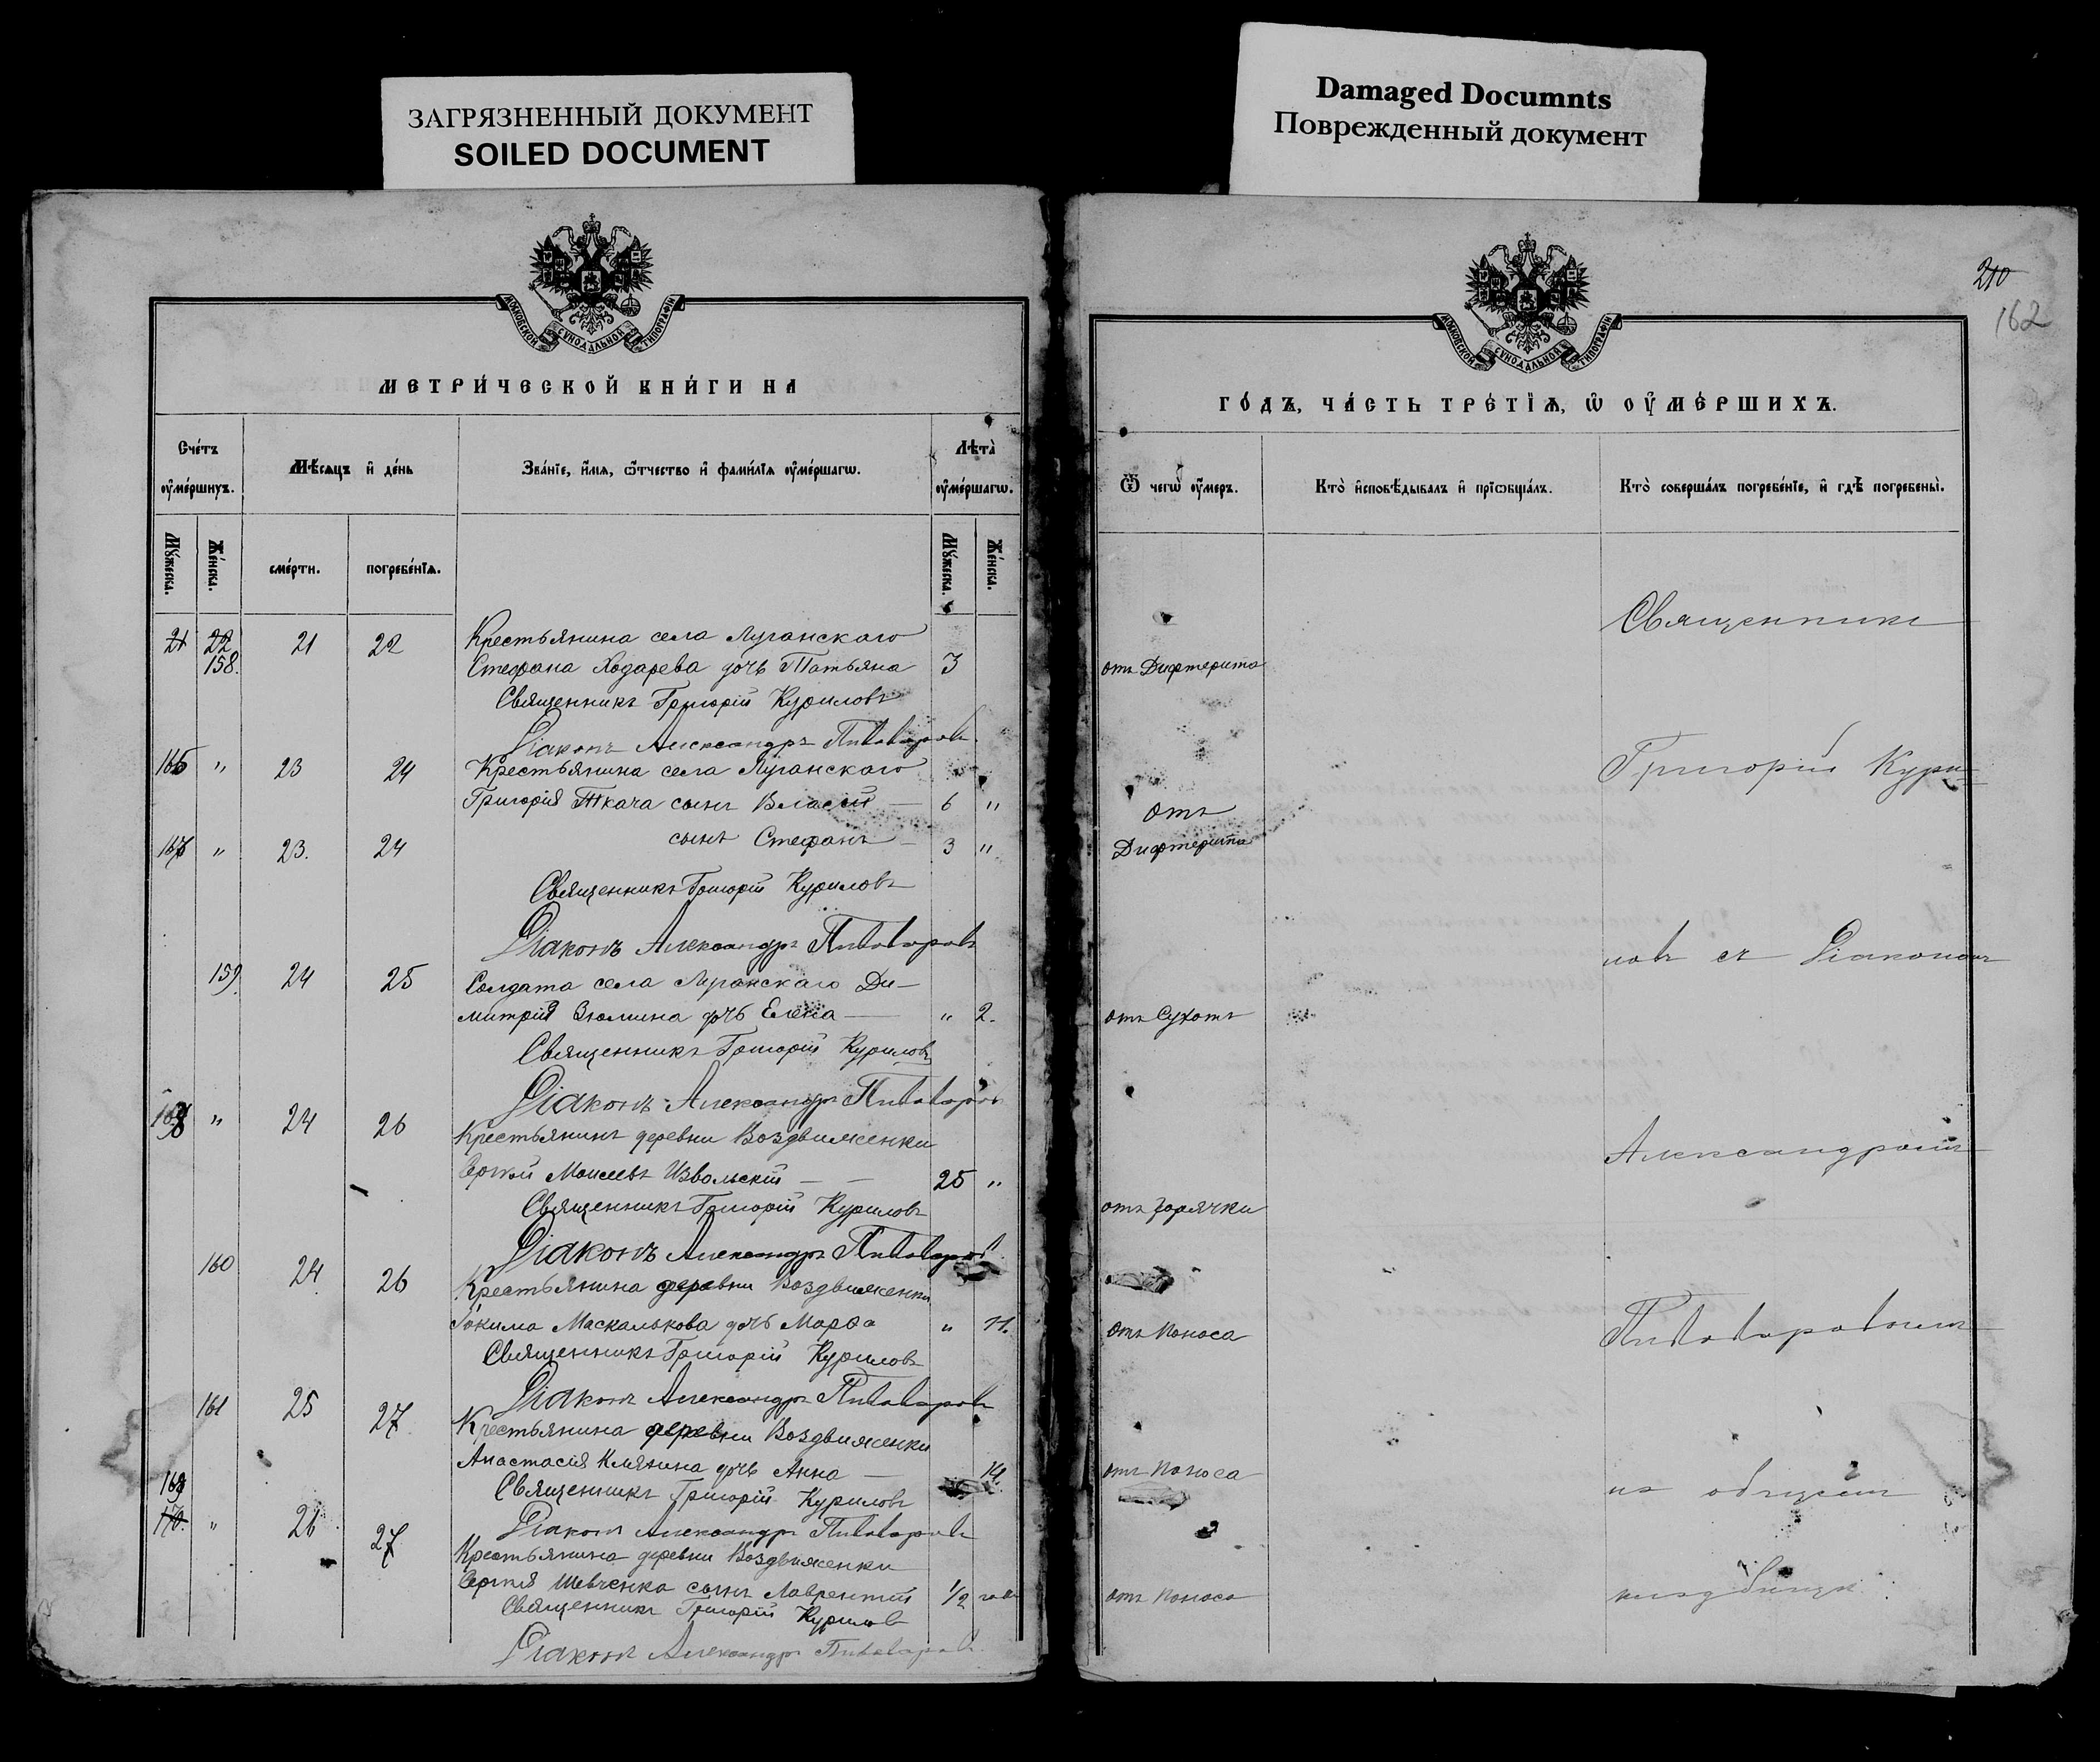 ЗАГРЯЗНЕННЫЙ ДОКУМЕНТ
SOILED DOCUMENT
Damaged Documnts
Поврежденный документ
МОСКОВСКОЙ СУНОДАЛЬНОЙ ТИПОГРАФІИ
МЕТРИ́ЧЕСКОЙ КНИ́ГИ НА
Счетъ оумершихъ.
Мѣсяцъ и день
Званіе, имя, отчество и фамилія оумершагѡ.
Лѣта оумершагѡ.
Мужеска.
Женска.
смерти.
погребенїѧ.
Мужеска.
Женска.
21 22 158. 21 22 Крестьянина села Луганскаго
Стефана Ходарева дочь Татьяна 3
Священникъ Григорій Куриловъ
Діаконъ Александръ Пивоваровъ
166 " 23 24 Крестьянина села Луганскаго
Григорія Ткача сынъ Власій — 6 "
167 " 23. 24 сынъ Стефанъ — 3 "
Священникъ Григорій Куриловъ
Діаконъ Александръ Пивоваровъ
159. 24 25 Солдата села Луганскаго Ди-
митрія Зюмина дочь Елена — " 2.
Священникъ Григорій Куриловъ
Діаконъ Александръ Пивоваровъ
168 " 24 26 Крестьянинъ деревни Воздвиженки
Сергій Моисеевъ Извольскій — — 25 "
Священникъ Григорій Куриловъ
Діаконъ Александръ Пивоваровъ
160 24 26 Крестьянина деревни Воздвиженки
Іакима Маскалькова дочь Марѳа " 11.
Священникъ Григорій Куриловъ
Діаконъ Александръ Пивоваровъ
161 25 27 Крестьянина деревни Воздвиженки
Анастасія дочь Анна — 14.
Священникъ Григорій Куриловъ
Діаконъ Александръ Пивоваровъ
169
170. " 26 27 Крестьянина деревни Воздвиженки
Сергія Шевченка сынъ Лаврентій 1/2 года
Священникъ Григорій Куриловъ
Діаконъ Александръ Пивоваровъ
210
162
МОСКОВСКОЙ СУНОДАЛЬНОЙ ТИПОГРАФІИ
ГО́ДЪ, ЧА́СТЬ ТРЕ́ТЇѦ, Ѡ ОУМЕ́РШИХЪ.
Ѿ чегѡ оумеръ.
Кто исповѣдывалъ и прїѡбщалъ.
Кто совершалъ погребенїе, и гдѣ погребены.
Священникъ
отъ Дифтерита
Григорій Кури-
отъ
Дифтерита
ловъ съ Діакономъ
отъ Сухотъ
Александромъ
отъ горячки
Пивоваровымъ
отъ поноса
отъ поноса
на общемъ
кладбищѣ
отъ поноса